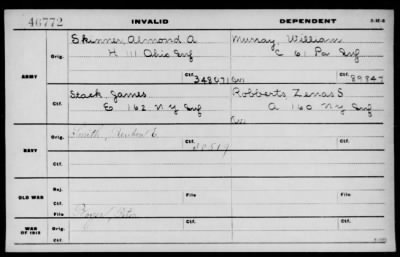 46772 INVALID DEPENDENT 3-H-6
Skinner, Almond A Murray, William
Orig. H 111 Ohio Inf C 61 Pa Inf
ARMY
Ctf. 348071 Ctf. 89347
Stack, James Robberts, Zenas S
Ctf. E 162 N Y Inf A 160 N Y Inf
Smith, Reuben E.
Orig. Ctf.
NAVY 20519
Ctf.
Rej.
OLD WAR Ctf. File File
File
WAR OF 1812 Orig. Ctf. Ctf.
Ctf.